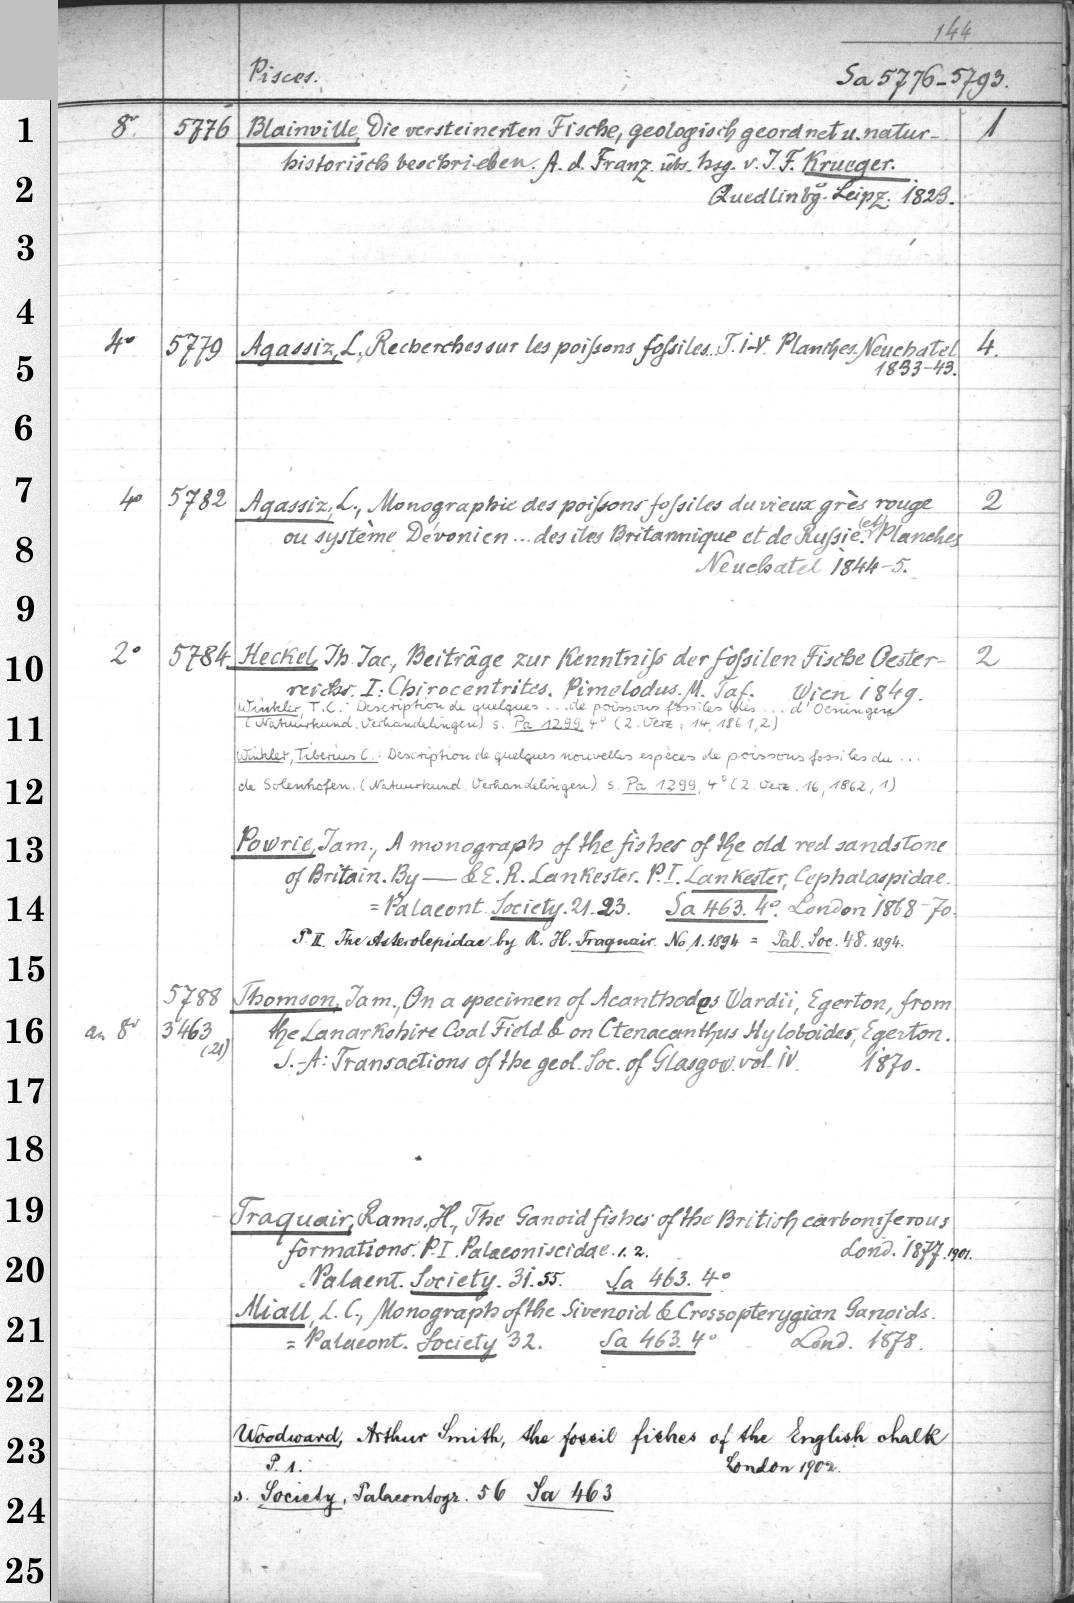 144
Pisces. Sa 5776-5793.
1 8° 5776 Blainville, Die versteinerten Fische, geologisch geordnet u. natur- 1
historisch beschrieben. A. d. Franz. übs. hsg. v. J. F. Krueger.
2 Quedlinbg. Leipz. 1823.
3
4
4° 5779 Agassiz, L., Recherches sur les poissons fossiles. T. I-V. Planches. Neuchatel 4.
5 1833-43.
6
7 4° 5782 Agassiz, L., Monographie des poissons fossiles du vieux grès rouge 2
8 ou système Dévonien ... des iles Britannique et de Russie. (et) Planches
Neuchatel 1844-5.
9
10 2° 5784 Heckel, Jh. Jac., Beiträge zur Kenntniss der fossilen Fische Oester- 2
reichs. I: Chirocentrites. Pimelodus. M. Taf. Wien 1849.
Winkler, T. C.: Description de quelques ... de poissons fossiles des ... d'Oeningen
11 (Natuurkund. Verhandelingen) s. Pa 1299, 4° (2. Verz. 14, 1861, 2)
Winkler, Tiberius C.: Description de quelques nouvelles espèces de poissons fossiles du ...
12 de Solenhofen. (Natuurkund. Verhandelingen) s. Pa 1299, 4° (2. Verz. 16, 1862, 1)
13 Powrie, Jam., A monograph of the fishes of the old red sandstone
of Britain. By — & E. R. Lankester. P. I. Lankester, Cephalaspidae.
14 = Palaeont. Society. 21. 23. Sa 463. 4°. London 1868-70.
P. II. The Asterolepidae by R. H. Traquair. No 1. 1894 = Pal. Soc. 48. 1894.
15
5788 Thomson, Jam., On a specimen of Acanthodes Wardii, Egerton, from
16 an 8° 3463 the Lanarkshire Coal Field & on Ctenacanthus Hyloboides, Egerton.
(21) S.-A: Transactions of the geol. Soc. of Glasgow. vol. IV. 1870.
17
18
19 Traquair, Rams. H., The Ganoid fishes of the British carboniferous
formations. P. I. Palaeoniscidae. 1. 2. Lond. 1877. 1901.
20 Palaent. Society. 31. 55. Sa 463. 4°
21 Miall, L. C., Monograph of the Sirenoid & Crossopterygian Ganoids.
= Palaeont. Society 32. Sa 463. 4° Lond. 1878.
22
23 Woodward, Arthur Smith, the fossil fishes of the English chalk
P. 1. London 1902.
24 s. Society, Palaeontogr. 56 Sa 463
25